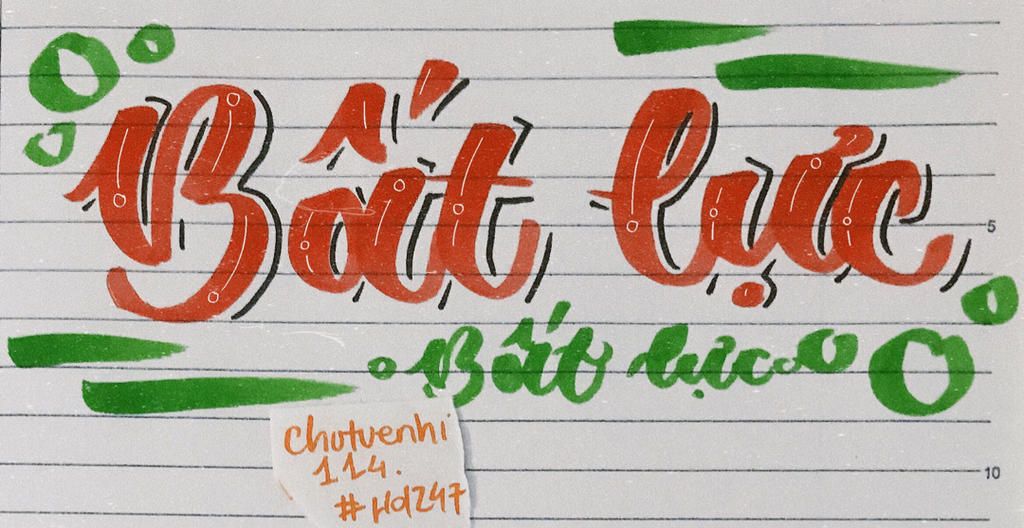 Bất lực
5
Bất lực
Chotuenhi
114.
#Hd247
10